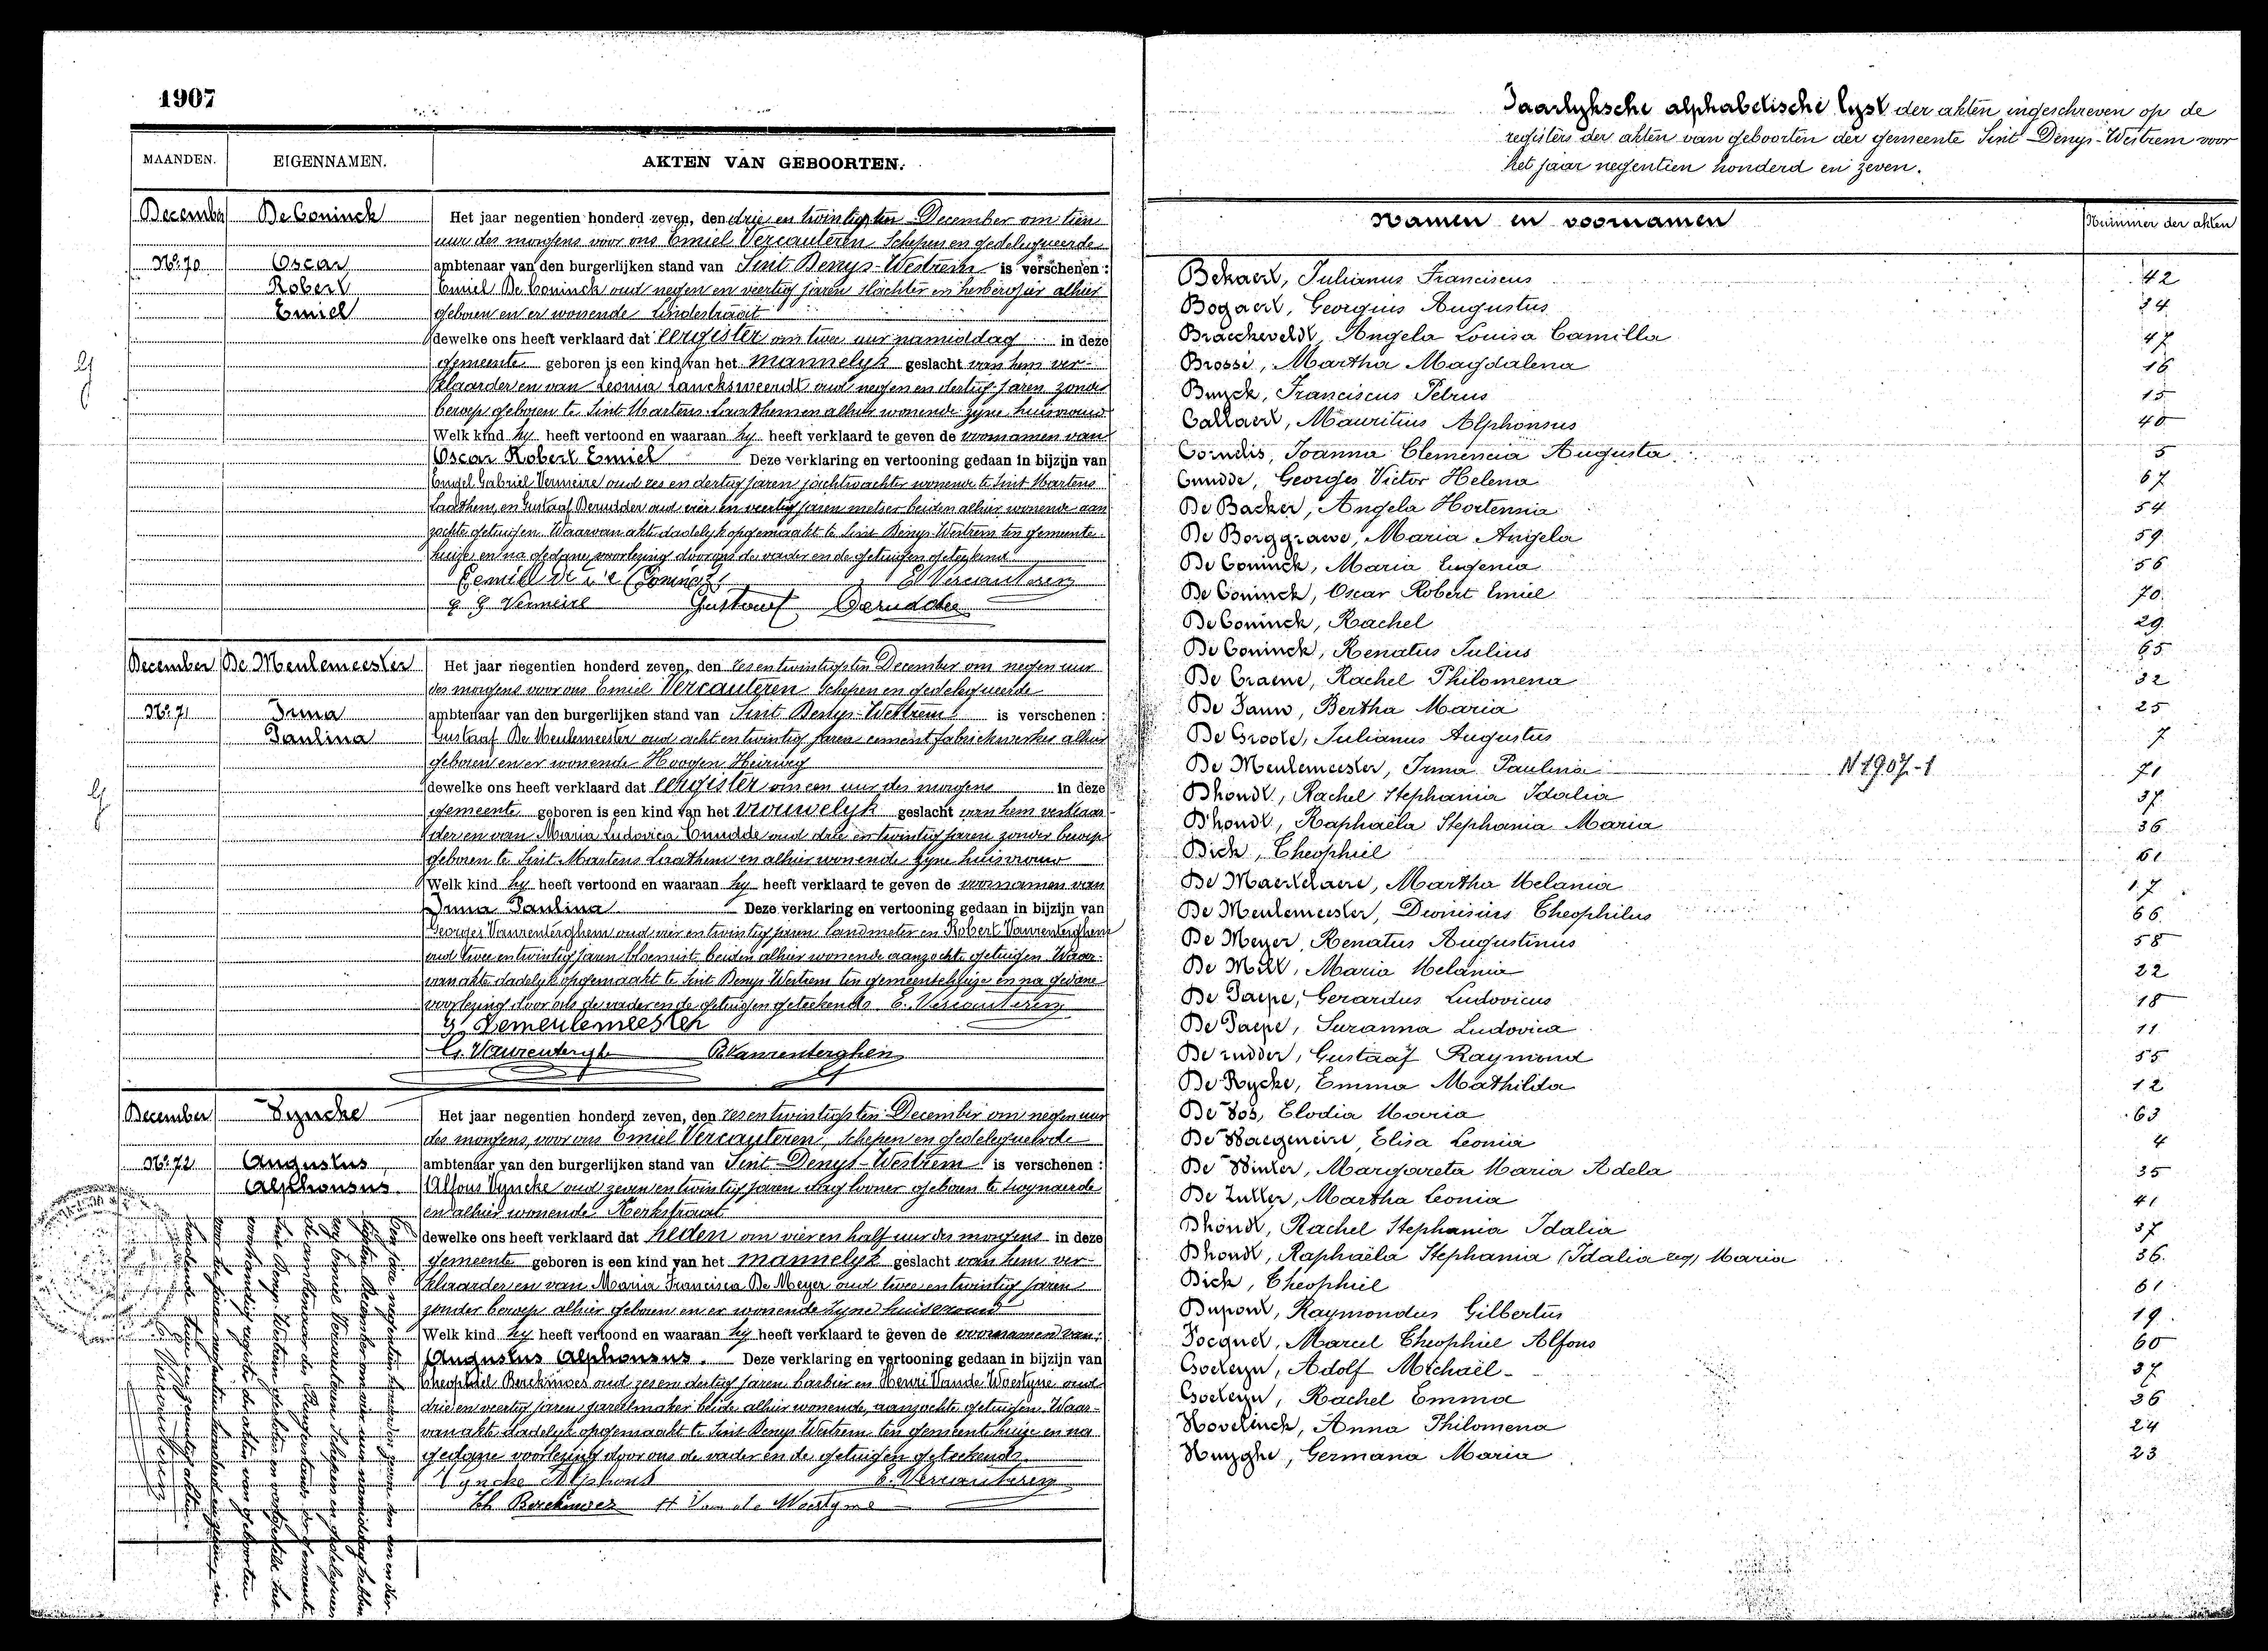 1907
MAANDEN. EIGENNAMEN. AKTEN VAN GEBOORTEN.
December De Coninck Het jaar negentien honderd zeven, den drie en twintigsten December om tien
uur des morgens voor ons Emiel Vercauteren Schepen en gedelegueerde
No. 70 Oscar ambtenaar van den burgerlijken stand van Sint Denys-Westrem is verschenen:
Robert Emiel De Coninck oud negen en veertig jaren slachter en herbergier alhier
Emiel geboren en er wonende Lindestraat
dewelke ons heeft verklaard dat eergister om twee uur namiddag in deze
gemeente geboren is een kind van het mannelyk geslacht van hem ver-
klaarder en van Leonia Lancksweerdt oud negen en dertig jaren zonder
beroep geboren te Sint Martens Laathem en alhier wonende zyne huisvrouw
Welk kind hy heeft vertoond en waaraan hy heeft verklaard te geven de voornamen van
Oscar Robert Emiel Deze verklaring en vertooning gedaan in bijzijn van
Gabriel Vermeire oud zes en dertig jaren jachtwachter wonende te Sint Martens
Laathem, en Gustaaf Derudder oud vier en veertig jaren metser beiden alhier wonende aan
zochte getuigen. Waarvan akte dadelyk opgemaakt te Sint Denys Westrem ten gemeente
huize en na gedane voorlezing door ons de vader en de getuigen geteekend
E Vercauteren
g g Vermeire Gustaaf Derudder
December De Meulemeester Het jaar negentien honderd zeven, den zes en twintigsten December om negen uur
des morgens voor ons Emiel Vercauteren Schepen en gedelegueerde
No. 71 Irma ambtenaar van den burgerlijken stand van Sint Denys-Westrem is verschenen:
Paulina Gustaaf De Meulemeester oud acht en twintig jaren cement fabriekwerker alhier
geboren en er wonende Hoogen Heirweg
dewelke ons heeft verklaard dat eergister om een uur des morgens in deze
gemeente geboren is een kind van het vrouwelyk geslacht van hem verklaar-
der en van Maria Ludovica Cnudde oud drie en twintig jaren zonder beroep
geboren te Sint Martens Laathem en alhier wonende zyne huisvrouw
Welk kind hy heeft vertoond en waaraan hy heeft verklaard te geven de voornamen van
Irma Paulina Deze verklaring en vertooning gedaan in bijzijn van
Georges Vanrenterghem oud vier en twintig jaren landmeter en Robert Vanrenterghem
oud twee en twintig jaren bloemist beiden alhier wonende aanzochte getuigen. Waar-
van akte dadelyk opgemaakt te Sint Denys Westrem ten gemeentehuize en na gedane
voorlezing door ons de vader en de getuigen geteekend. E. Vercauteren
G Demeulemeester
G. Vanrentergh R Vanrenterghem
December Vyncke Het jaar negentien honderd zeven, den zes en twintigsten December om negen uur
des morgens, voor ons Emiel Vercauteren, Schepen en gedelegueerde
No. 72 Augustus ambtenaar van den burgerlijken stand van Sint-Denys-Westrem is verschenen:
Alphonsus Alfons Vyncke oud zeven en twintig jaren dag looner geboren te Zwynaerde
en alhier wonende Kerkstraat
dewelke ons heeft verklaard dat heden om vier en half uur des morgens in deze
gemeente geboren is een kind van het mannelyk geslacht van hem ver-
klaarder en van Maria Francisca De Meyer oud twee en twintig jaren
zonder beroep alhier geboren en er wonende zyne huisvrouw
Welk kind hy heeft vertoond en waaraan hy heeft verklaard te geven de voornamen van:
Augustus Alphonsus. Deze verklaring en vertooning gedaan in bijzijn van
Theophiel Berckmoes oud zes en dertig jaren barbier en Henri Vande Woestyne oud
drie en veertig jaren gareelmaker beide alhier wonende, aanzochte getuigen. Waar-
van akte dadelyk opgemaakt te Sint Denys Westrem ten gemeentehuize en na
gedane voorlezing door ons de vader en de getuigen geteekend.
Vyncke Alphons E. Vercauteren
Th Berckmoes H Van de Woestyne
Jaarlyksche alphabetische lyst der akten ingeschreven op de
registers der akten van geboorten der gemeente Sint-Denys-Westrem voor
het jaar negentien honderd en zeven.
Namen en voornamen Nummer der akten
Bekaert, Julianus Franciscus 42
Bogaert, Georgius Augustus 34
Braeckeveldt, Angela Louisa Camilla 47
Brossé, Martha Magdalena 16
Buysk, Franciscus Petrus 15
Callaert, Mauritius Alphonsus 40
Cornelis, Joanna Clemencia Augusta 5
Cnudde, Georges Victor Helena 67
De Backer, Angela Hortensia 54
De Borggraeve, Maria Angela 59
De Coninck, Maria Eugenia 56
De Coninck, Oscar Robert Emiel 70
De Coninck, Rachel 29
De Coninck, Renatus Julius 65
De Craene, Rachel Philomena 32
De Fauw, Bertha Maria 25
De Groote, Julianus Augustus 7
De Meulemeester, Irma Paulina N 1907-1 71
Dhondt, Rachel Stephania Idalia 37
Dhondt, Raphaëla Stephania Maria 36
Dick, Theophiel 61
De Maerschaere, Martha Melania 17
De Meulemeester, Dionisius Theophilus 66
De Meyer, Renatus Augustinus 58
De Mill, Maria Melania 22
De Paepe, Gerardus Ludovicus 18
De Paepe, Suzanna Ludovica 11
De rudder, Gustaaf Raymond 55
De Rycke, Emma Mathilda 12
De Vos, Elodia Maria 63
De Waegeneire, Elisa Leonia 4
De Winter, Margareta Maria Adela 35
De Zutter, Martha Leonia 41
Dhondt, Rachel Stephania Idalia 37
Dhondt, Raphaëla Stephania (Idalia reg) Maria 36.
Dick, Theophiel 61
Dupont, Raymondus Gilbertus 19.
Focquet, Marcel Theophiel Alfons 60
Goeteyn, Adolf Michaël 37
Goeteyn, Rachel Emma 36
Hovelinck, Anna Philomena 24
Huyghe, Germana Maria 23